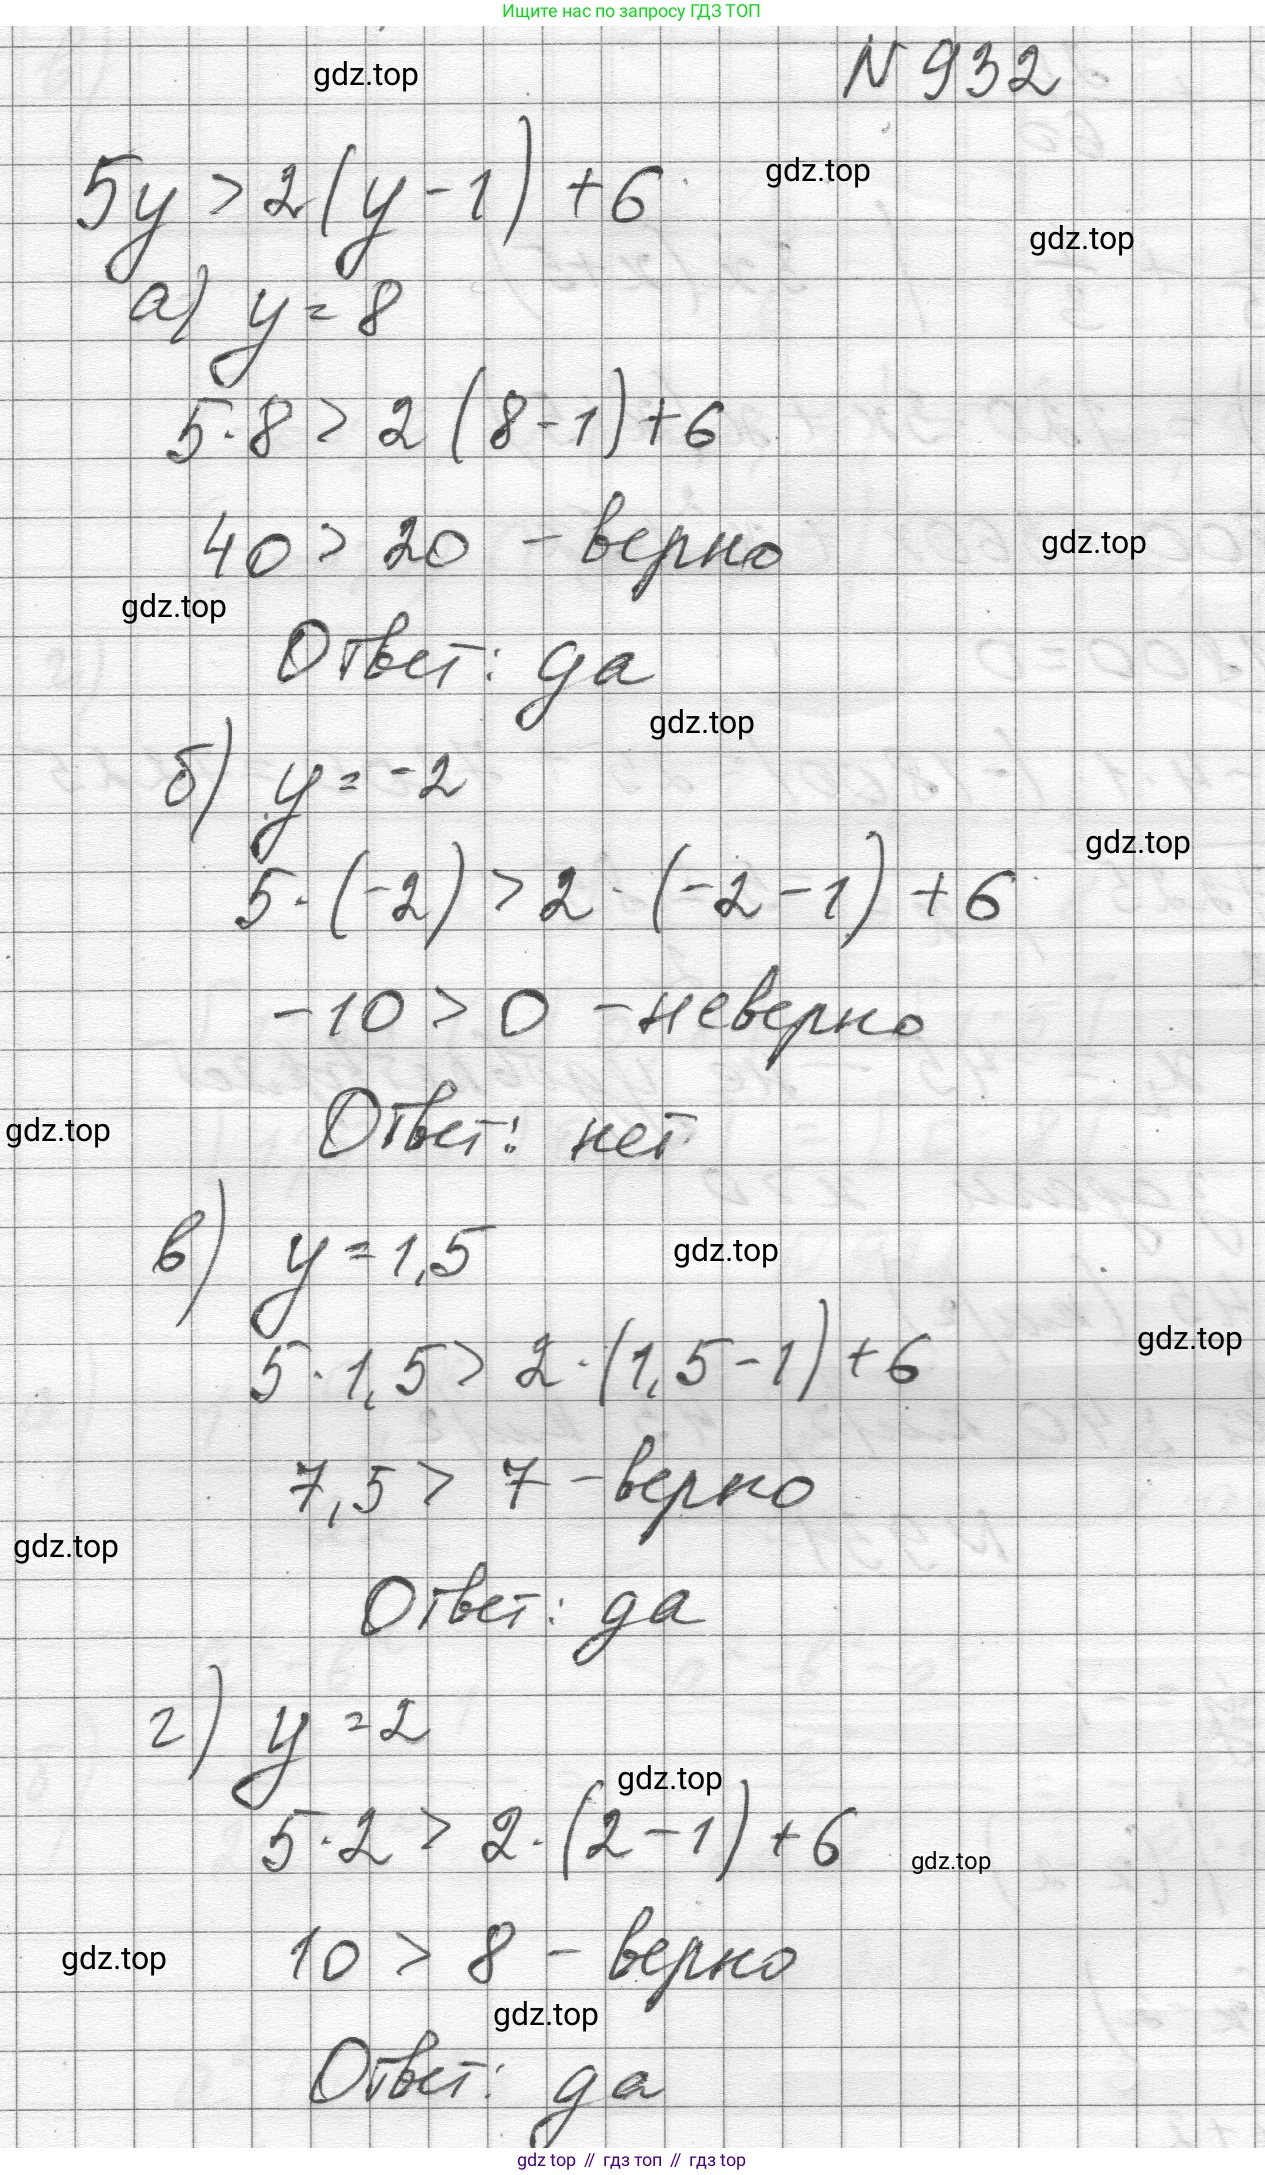 Ищите нас по запросу ГДЗ ТОП
gdz.top
N 932
5y > 2(y - 1) + 6
gdz.top
gdz.top
а) y = 8
5 · 8 > 2 (8 - 1) + 6
40 > 20 - верно
gdz.top
gdz.top
Ответ: да
gdz.top
б) y = -2
gdz.top
5 · (-2) > 2 · (-2 - 1) + 6
-10 > 0 - неверно
gdz.top
Ответ: нет
в) y = 1,5
gdz.top
gdz.top
5 · 1,5 > 2 · (1,5 - 1) + 6
7,5 > 7 - верно
gdz.top
Ответ: да
г) y = 2
gdz.top
5 · 2 > 2 · (2 - 1) + 6
gdz.top
10 > 8 - верно
gdz.top
gdz.top
Ответ: да
gdz top // гдз топ // gdz top